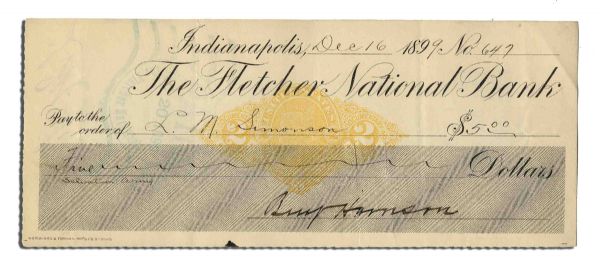 Indianapolis, Dec 16 1899 No. 647
The Fletcher National Bank
Pay to the order of L. M. Simonson $5.00
Five Dollars
Salvation Army
Benj Harrison